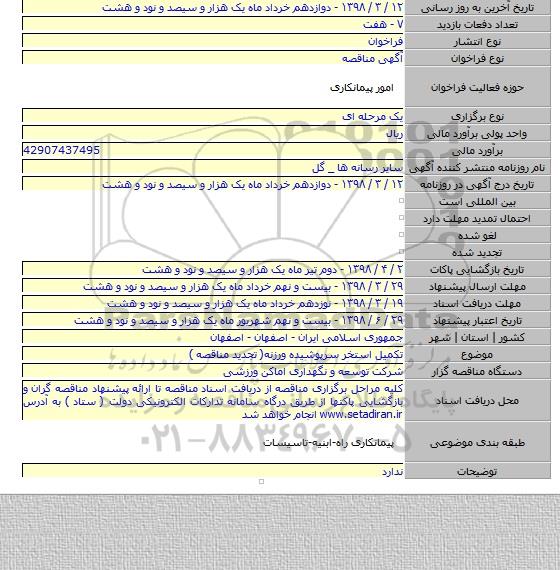 تاریخ آخرین به روز رسانی ۱۲ / ۳ / ۱۳۹۸ - دوازدهم خرداد ماه یک هزار و سیصد و نود و هشت
تعداد دفعات بازدید ۷ - هفت
نوع انتشار فراخوان
نوع فراخوان آگهی مناقصه
حوزه فعالیت فراخوان امور پیمانکاری
نوع برگزاری یک مرحله ای
واحد پولی برآورد مالی ریال
برآورد مالی 42907437495
نام روزنامه منتشر کننده آگهی سایر رسانه ها _ گل
تاریخ درج آگهی در روزنامه ۱۲ / ۳ / ۱۳۹۸ - دوازدهم خرداد ماه یک هزار و سیصد و نود و هشت
بین المللی است
احتمال تمدید مهلت دارد
لغو شده
تجدید شده
تاریخ بازگشایی پاکات ۲ / ۴ / ۱۳۹۸ - دوم تیر ماه یک هزار و سیصد و نود و هشت
مهلت ارسال پیشنهاد ۲۹ / ۳ / ۱۳۹۸ - بیست و نهم خرداد ماه یک هزار و سیصد و نود و هشت
مهلت دریافت اسناد ۱۹ / ۳ / ۱۳۹۸ - نوزدهم خرداد ماه یک هزار و سیصد و نود و هشت
تاریخ اعتبار پیشنهاد ۲۹ / ۶ / ۱۳۹۸ - بیست و نهم شهریور ماه یک هزار و سیصد و نود و هشت
کشور | استان | شهر جمهوری اسلامی ایران - اصفهان - اصفهان
موضوع تکمیل استخر سرپوشیده ورزنه( تجدید مناقصه )
دستگاه مناقصه گزار شرکت توسعه و نگهداری اماکن ورزشی
محل دریافت اسناد کلیه مراحل برگزاری مناقصه از دریافت اسناد مناقصه تا ارائه پیشنهاد مناقصه گران و
بازگشایی پاکتها از طریق درگاه سامانه تدارکات الکترونیکی دولت ( ستاد ) به آدرس
www.setadiran.ir انجام خواهد شد
طبقه بندی موضوعی پیمانکاری راه-ابنیه-تاسیسات
توضیحات ندارد
۰۲۱-۸۸۳۴۹۶۷۰-۵